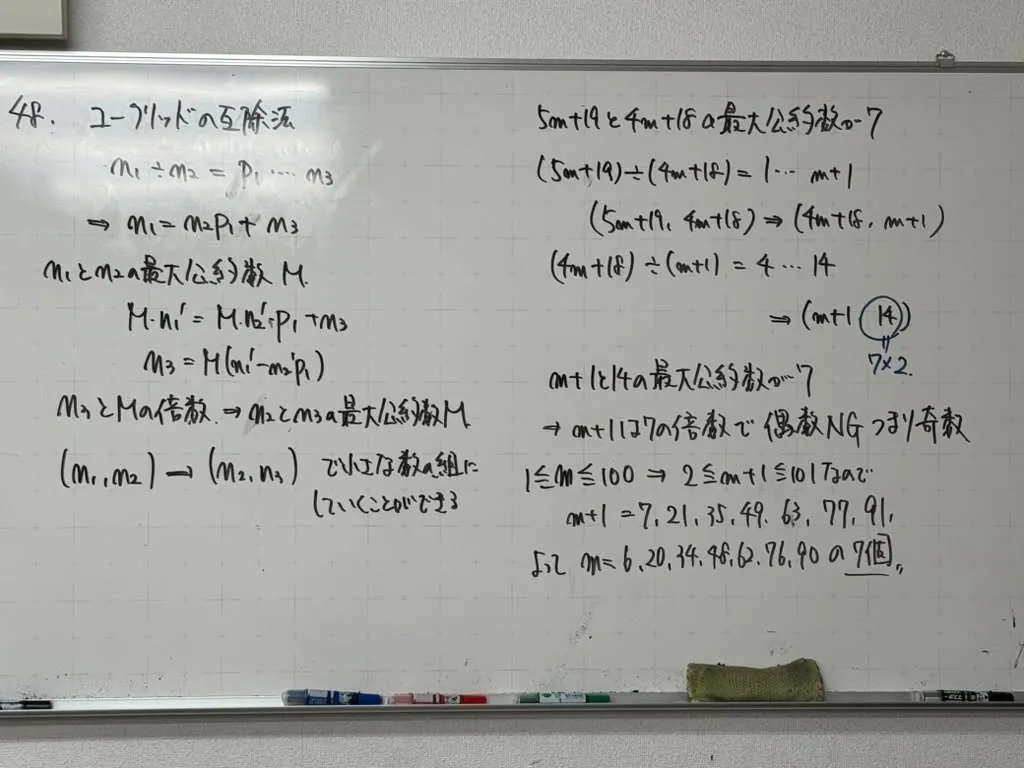 48. ユークリッドの互除法
n₁÷n₂ = p₁ … n₃
⇒ n₁ = n₂p₁ + n₃
n₁とn₂の最大公約数 M
M・n₁' = M・n₂'・p₁ + n₃
n₃ = M(n₁'-n₂'p₁)
n₃とMの倍数 ⇒ n₂とn₃の最大公約数M
(n₁, n₂) → (n₂, n₃) で小さな数の組に
していくことができる
5m+19と4m+18の最大公約数が7
(5m+19)÷(4m+18) = 1 … m+1
(5m+19, 4m+18) ⇒ (4m+18, m+1)
(4m+18) ÷ (m+1) = 4 … 14
⇒ (m+1 14)
7×2.
m+1と14の最大公約数が7
→ m+1は7の倍数で 偶数NG つまり奇数
1≦m≦100 ⇒ 2≦m+1≦101なので
m+1 = 7, 21, 35, 49, 63, 77, 91,
よって m = 6, 20, 34, 48, 62, 76, 90 の 7個〃